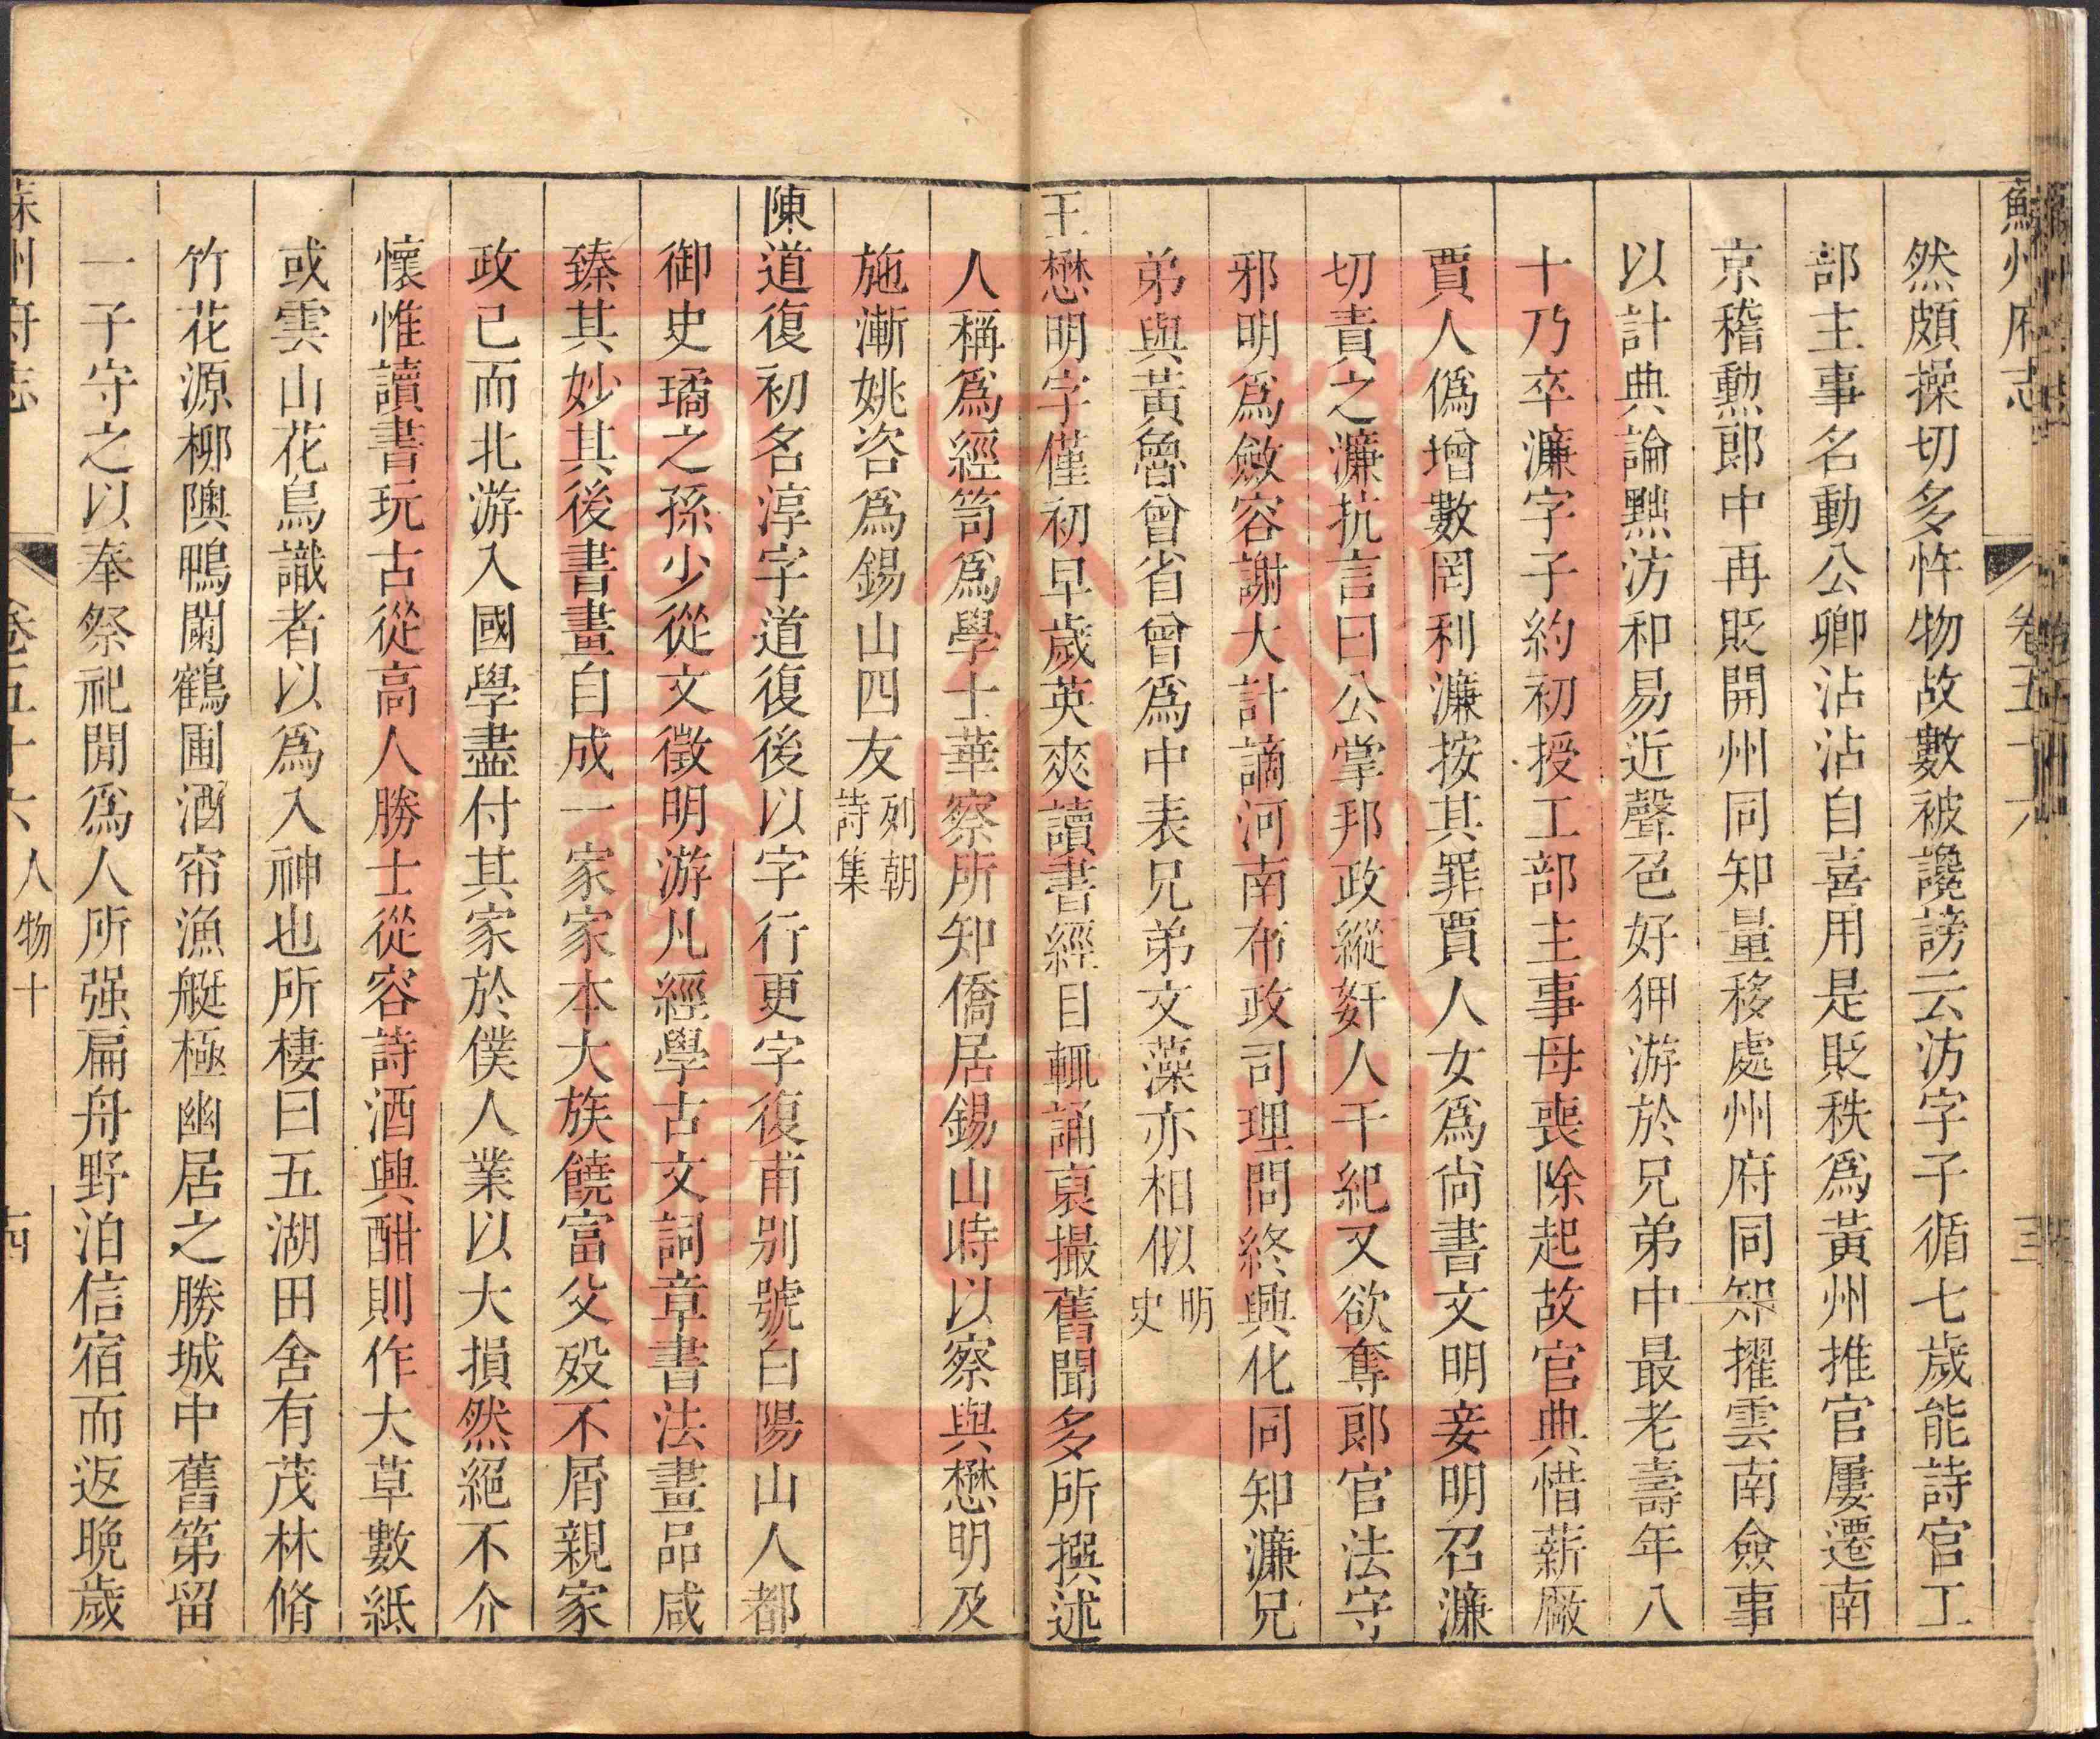 蘇州府志 卷五十六 三
然頗操切多忤物故數被讒謗云汸字子循七歲能詩官工
部主事名動公卿沾沾自喜用是貶秩爲黃州推官屢遷南
京稽勲郎中再貶開州同知量移處州府同知擢雲南僉事
以計典論黜汸和易近聲色好狎游於兄弟中最老壽年八
十乃卒濂字子約初授工部主事母喪除起故官典惜薪厰
賈人僞增數罔利濂按其罪賈人女爲尚書文明妾明召濂
切責之濂抗言曰公掌邦政縱姧人干紀又欲奪郎官法守
邪明爲斂容謝大計謫河南布政司理問終興化同知濂兄
弟與黃魯曾省曾爲中表兄弟文藻亦相似明史
王懋明字僅初早歲英爽讀書經目輒誦裒撮舊聞多所撰述
人稱爲經笥爲學士華察所知僑居錫山時以察與懋明及
施漸姚咨爲錫山四友列朝詩集
陳道復初名淳字道復後以字行更字復甫别號白陽山人都
御史璚之孫少從文徵明游凡經學古文詞章書法畫品咸
臻其妙其後書畫自成一家家本大族饒富父歿不屑親家
政已而北游入國學盡付其家於僕人業以大損然絕不介
懷惟讀書玩古從高人勝士從容詩酒興酣則作大草數紙
或雲山花鳥識者以爲入神也所棲曰五湖田舍有茂林脩
竹花源柳隩鴨闌鶴圃酒帘漁艇極幽居之勝城中舊第留
一子守之以奉祭祀閒爲人所强扁舟野泊信宿而返晩歲
蘇州府志 卷五十六 人物十 四